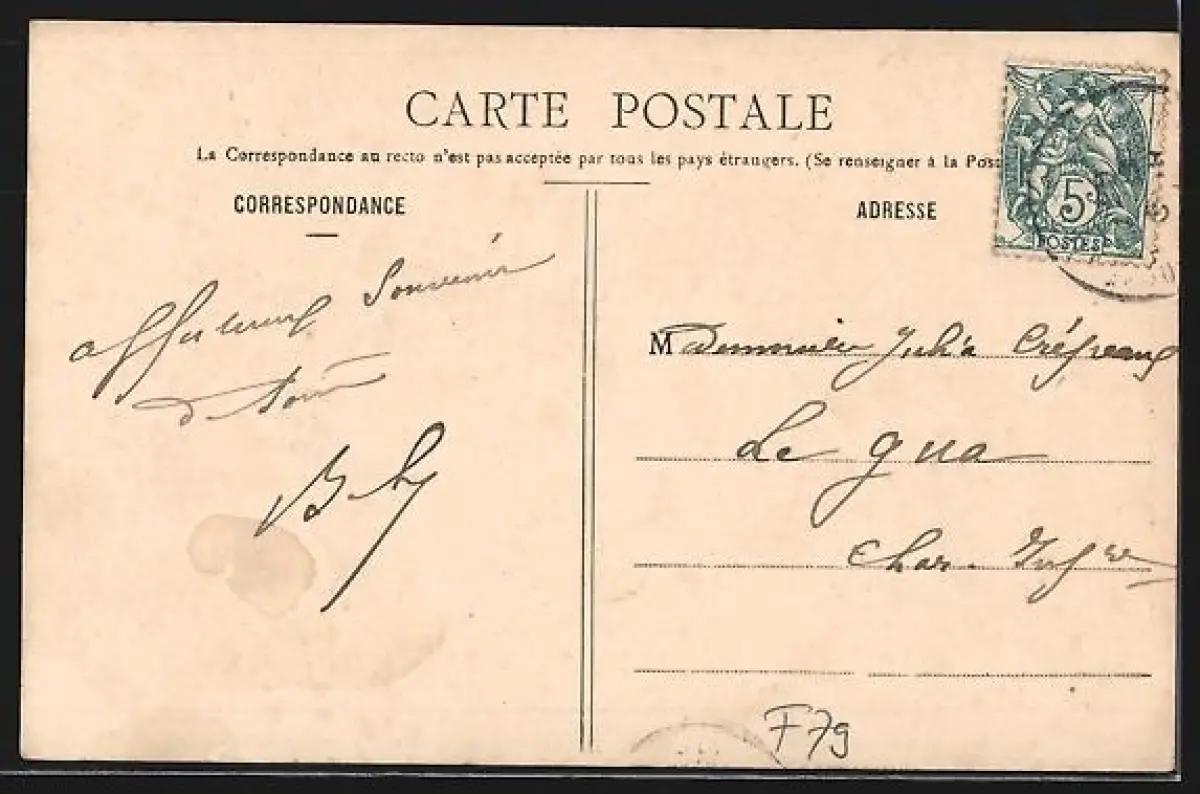 CARTE POSTALE
La Correspondance au recto n'est pas acceptée par tous les pays étrangers. (Se renseigner à la Post
CORRESPONDANCE
ADRESSE
5c
POSTES
Souvenir
de
Mademoiselle Julia
Le gua
Char. Infre
F79